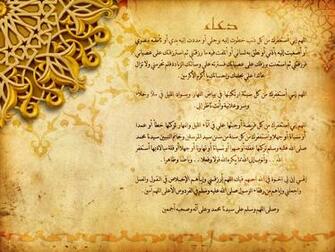 دعاء
اللهم إني أستغفرك من كل ذنب خطوت إليه برجلي أو مددت إليه يدي أو تأملته ببصري
أو أصغيت إليه بأذني أو نطق به لساني أو أتلفت فيه ما رزقتني ثم استرزقتك على عصياني
فرزقتني ثم استعنت برزقك على عصيانك فسترته علي وسألتك الزيادة فلم تحرمني ولا تزال
عائدا علي بحلمك وإحسانك يا أكرم الأكرمين
اللهم إني أستغفرك من كل سيئة ارتكبتها في بياض النهار وسواد الليل في ملأ وخلاء
وسر وعلانية وأنت ناظر إلي
اللهم إني أستغفرك من كل فريضة أوجبتها علي في آناء الليل والنهار تركتها خطأ أو عمدا
أو نسيانا أو جهلا وأستغفرك من كل سنة من سنن سيد المرسلين وخاتم النبيين سيدنا محمد
صلى الله عليه وسلم تركتها غفلة أو سهوا أو نسيانا أو تهاونا أو جهلا أو قلة مبالاة بها أستغفر
الله وأتوب إلى الله مما يكره الله قولا وفعلا وباطنا وظاهرا
وصلى اللهم وسلم على سيدنا محمد وعلى آله وصحبه أجمعين